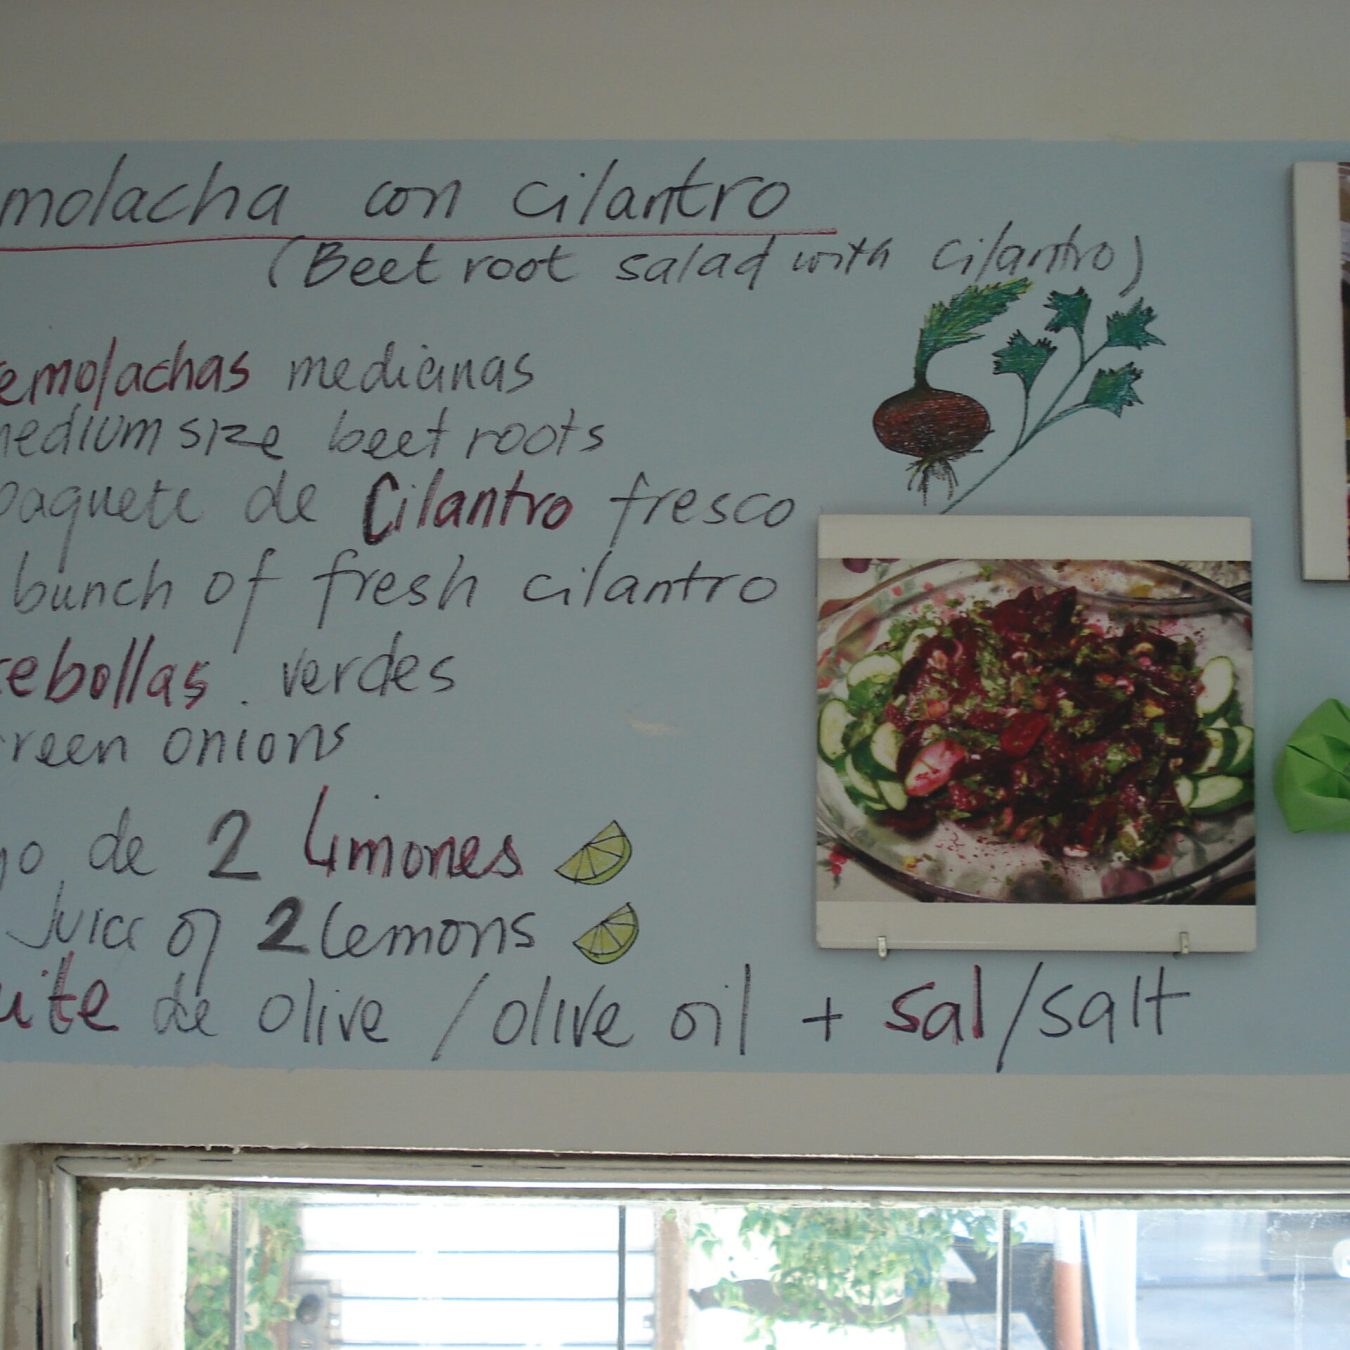 molacha con cilantro
(Beet root salad with cilantro)
emolachas medianas
medium size beet roots
paquete de Cilantro fresco
bunch of fresh cilantro
cebollas. verdes
reen onions
go de 2 Limones
Juice of 2 lemons
ite de olive / olive oil + sal/salt